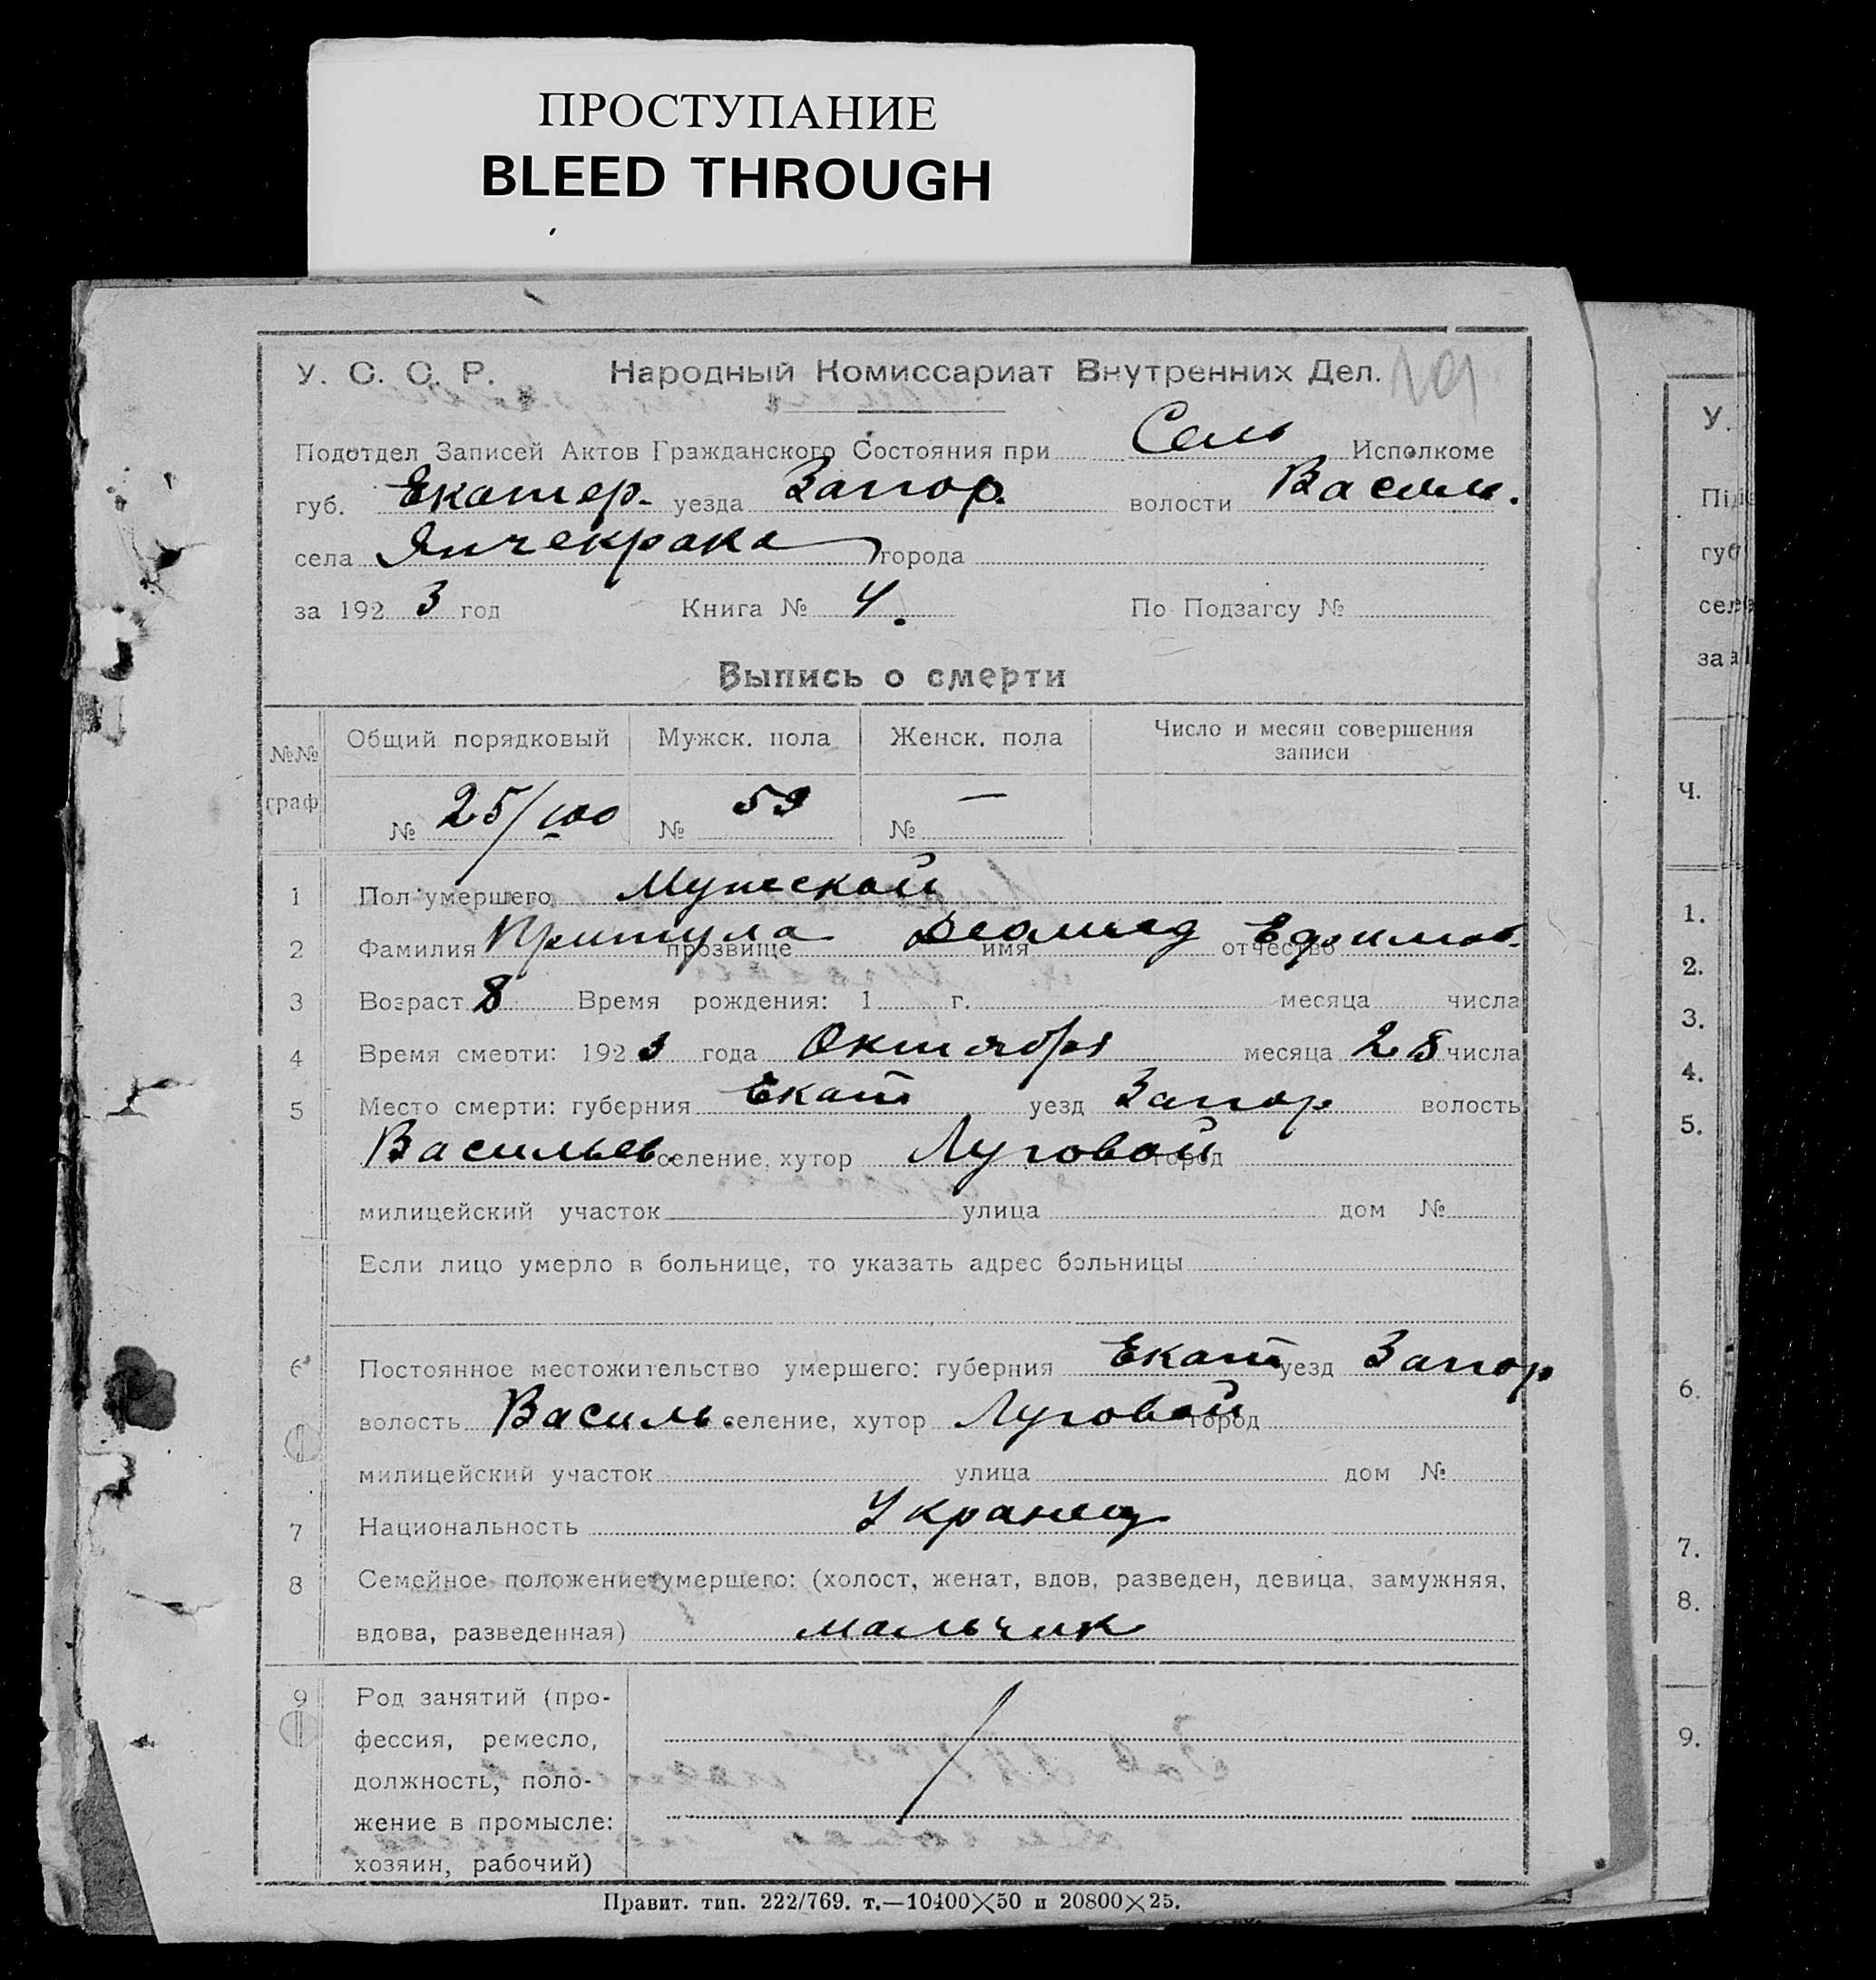 ПРОСТУПАНИЕ
BLEED THROUGH
У. С. С. Р. Народный Комиссариат Внутренних Дел. 101
Подотдел Записей Актов Гражданского Состояния при Сель Исполкоме
губ. Екатер. уезда Запор. волости Васил.
села Янчекрака города
за 1923 год Книга № 4. По Подзагсу №
Выпись о смерти
№№ граф
Общий порядковый Мужск. пола Женск. пола Число и месяц совершения записи
№ 25/100 № 59 № —
1 Пол умершего Мужской
2 Фамилия Притула прозвище имя Леонид отчество Ефимов.
3 Возраст 8 Время рождения: 1 г. месяца числа
4 Время смерти: 1923 года Октября месяца 28 числа
5 Место смерти: губерния Екат уезд Запор волость
Васильев. селение, хутор Луговой город
милицейский участок улица дом №
Если лицо умерло в больнице, то указать адрес больницы
6 Постоянное местожительство умершего: губерния Екат уезд Запор
волость Василь. селение, хутор Луговой город
милицейский участок улица дом №
7 Национальность Укранец
8 Семейное положение умершего: (холост, женат, вдов, разведен, девица, замужняя,
вдова, разведенная) мальчик
9 Род занятий (про-
фессия, ремесло,
должность, поло-
жение в промысле:
хозяин, рабочий)
Правит. тип. 222/769. т.—10400×50 и 20800×25.
У.
губ
за
Ч.
1.
2.
3.
4.
5.
6.
7.
8.
9.